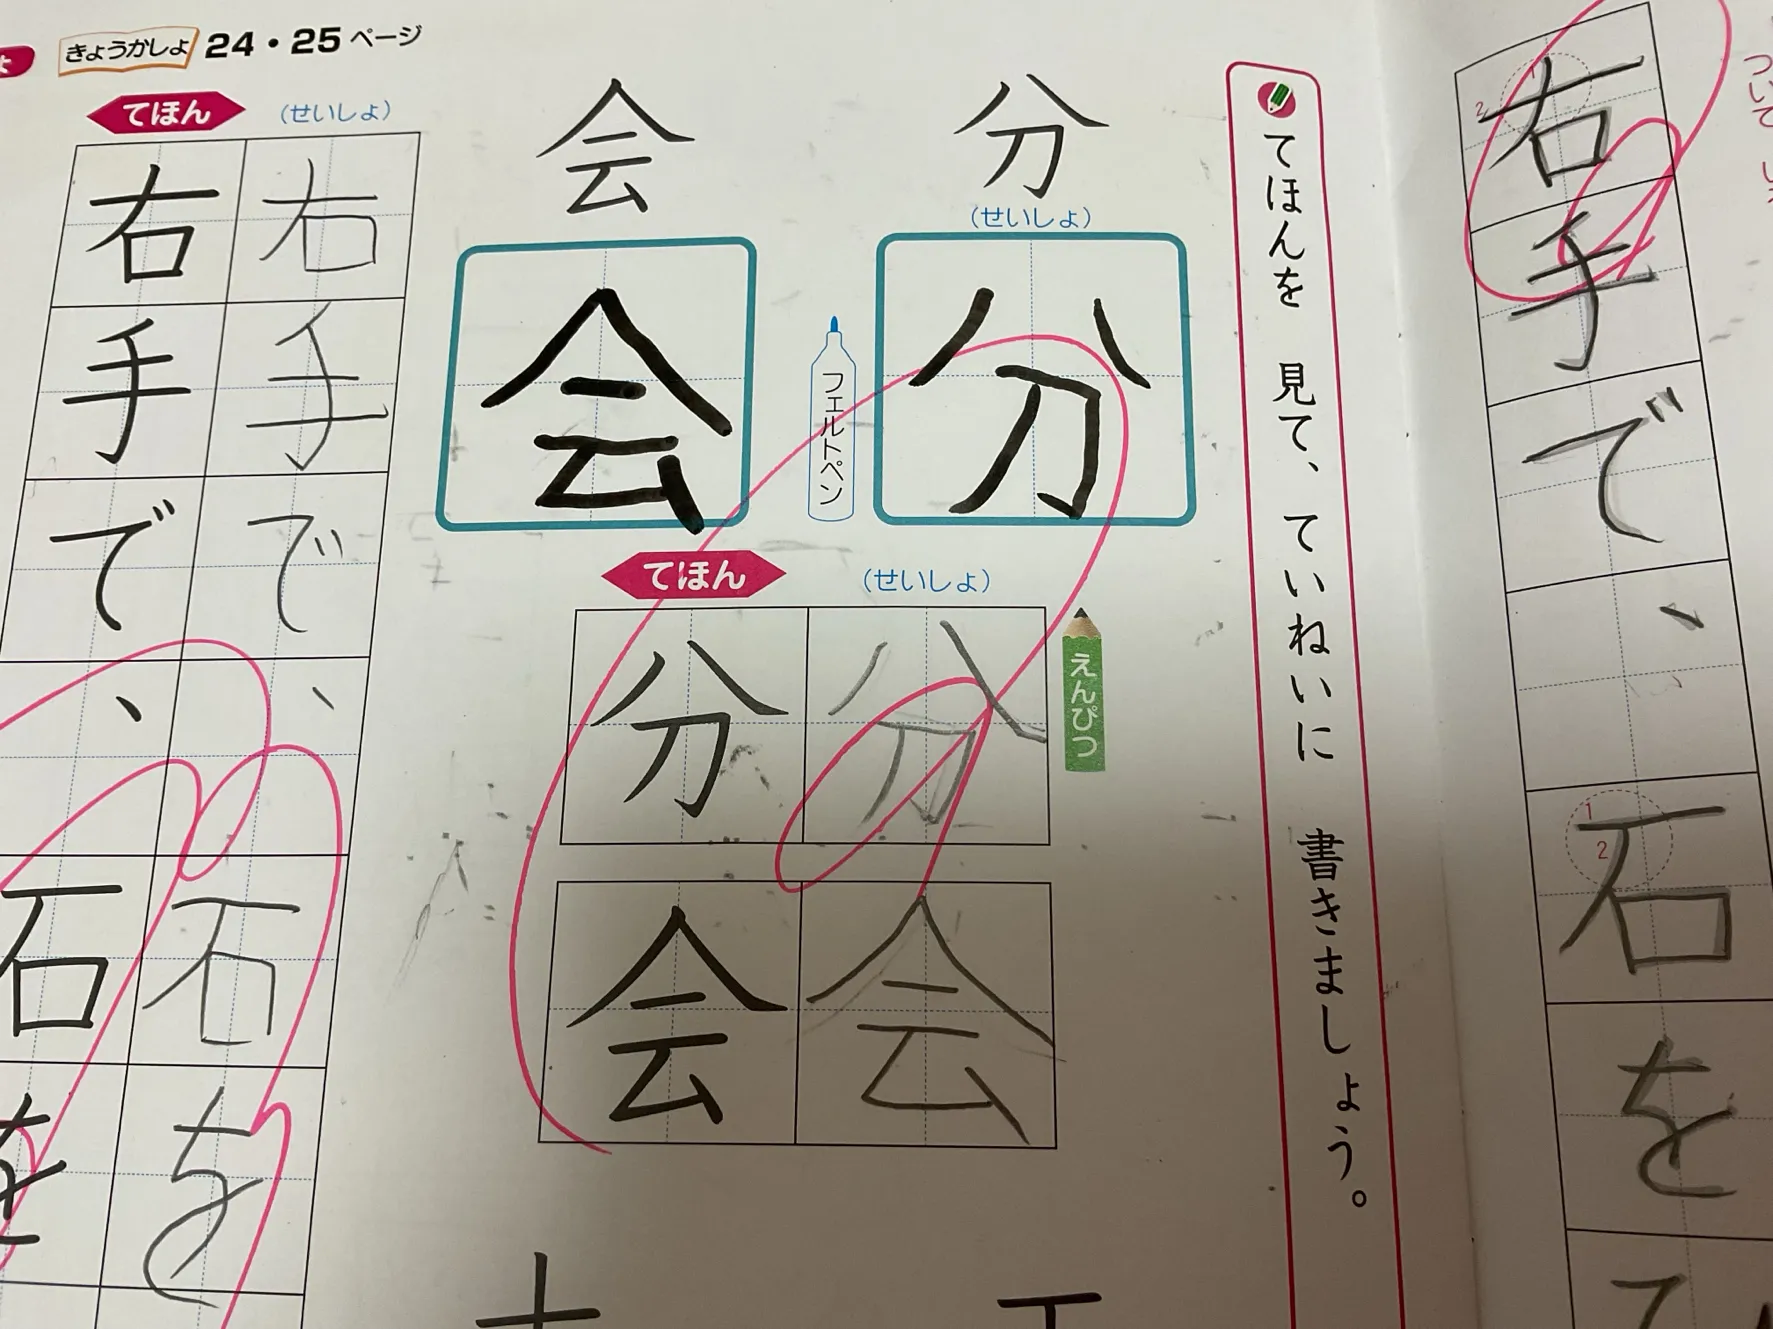 右
手
で
、
石
を
てほんを 見て、ていねいに 書きましょう。
分
(せいしょ)
分
フェルトペン
会
会
えんぴつ
てほん
(せいしょ)
分
分
会
会
きょうかしょ 24・25ページ
てほん
(せいしょ)
右
右
手
手
で
で
、
、
石
石
を
を